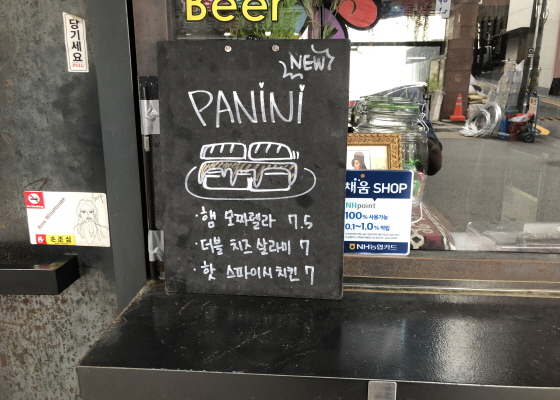 Beer
당기세요
PULL
NEW
PANINI
· 햄 모짜렐라 7.5
· 더블 치즈 살라미 7
· 핫 스파이시 치킨 7
채움 SHOP
NHpoint
100% 사용가능
0.1~1.0% 적립
NH농협카드
손조심